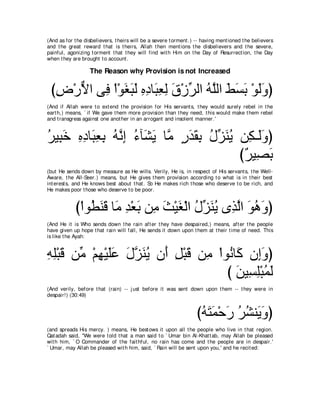 (And as for the disbelievers, theirs will be a severe torment.) -- having mentioned the believers
and the great reward that is theirs, Allah then mentions the disbelievers and the severe,
painful, agonizing torment that they will find with Him on the Day of Resurrection, the Day
when they are brought to account.
The Reason why Provision is not Increased
(وَلَوْ بَسَطَ اللَّهُ الرِّزْقَ لِعِبَادِهِ لَبَغَوْاْ فِى الاٌّرْضِ)
(And if Allah were to extend the provision for His servants, they would surely rebel in the
earth,) means, `if We gave them more provision than they need, this would make them rebel
and transgress against one another in an arrogant and insolent manner.'
(وَلَـكِن يُنَزِّلُ بِقَدَرٍ مَّا يَشَآءُ إِنَّهُ بِعِبَادِهِ خَبِيرُ
بَصِيرٌ)
(but He sends down by measure as He wills. Verily, He is, in respect of His servants, the Well-
Aware, the All-Seer.) means, but He gives them provision according to what is in their best
interests, and He knows best about that. So He makes rich those who deserve to be rich, and
He makes poor those who deserve to be poor.
(وَهُوَ الَّذِى يُنَزِّلُ الْغَيْثَ مِن بَعْدِ مَا قَنَطُواْ)
(And He it is Who sends down the rain after they have despaired,) means, after the people
have given up hope that rain will fall, He sends it down upon them at their time of need. This
is like the Ayah:
(وَإِن كَانُواْ مِن قَبْلِ أَن يُنَزَّلَ عَلَيْهِمْ مِّن قَبْلِهِ
لَمُبْلِسِينَ )
(And verily, before that (rain) -- just before it was sent down upon them -- they were in
despair!) (30:49)
(وَيَنشُرُ رَحْمَتَهُ)
(and spreads His mercy. ) means, He bestows it upon all the people who live in that region.
Qatadah said, "We were told that a man said to `Umar bin Al-Khattab, may Allah be pleased
with him, `O Commander of the faithful, no rain has come and the people are in despair.'
`Umar, may Allah be pleased with him, said, `Rain will be sent upon you,' and he recited: